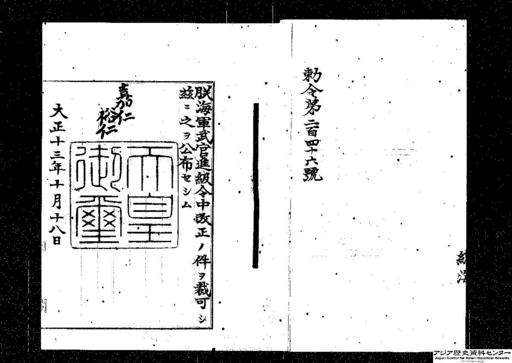 勅令第二百四十六號
朕海軍武官進級令中改正ノ件ヲ裁可シ
茲ニ之ヲ公布セシム
嘉仁
裕仁
天皇
御璽
大正十三年十月十八日
アジア歴史資料センター
Japan Center for Asian Historical Records